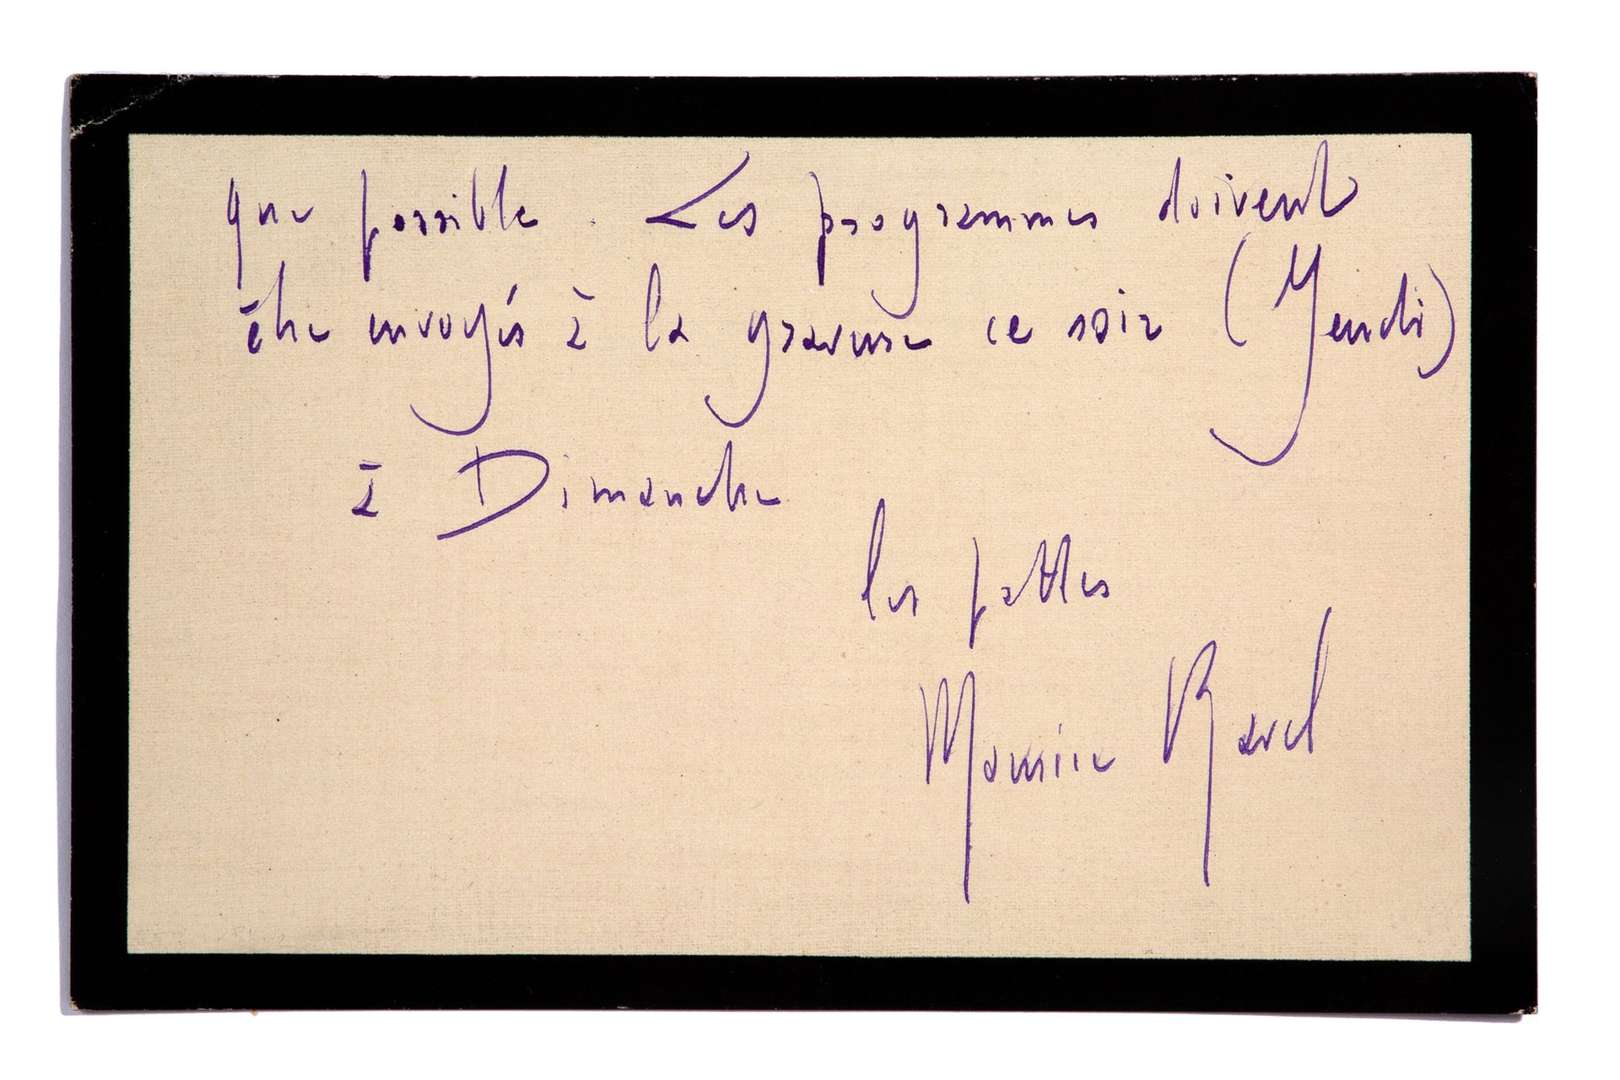 que possible. Les programmes doivent
être envoyés à la gravure ce soir (Jeudi)
à Dimanche
les pattes
Maurice Ravel